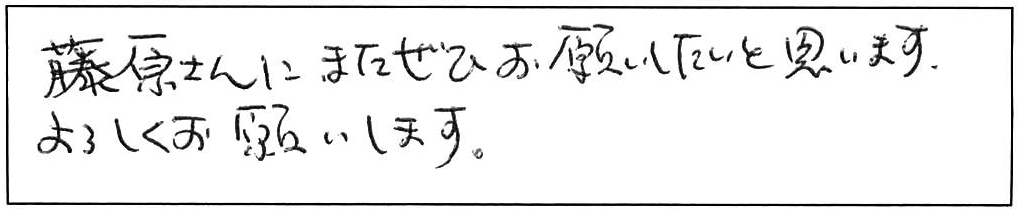 藤原さんにまたぜひお願いしたいと思います.
よろしくお願いします。